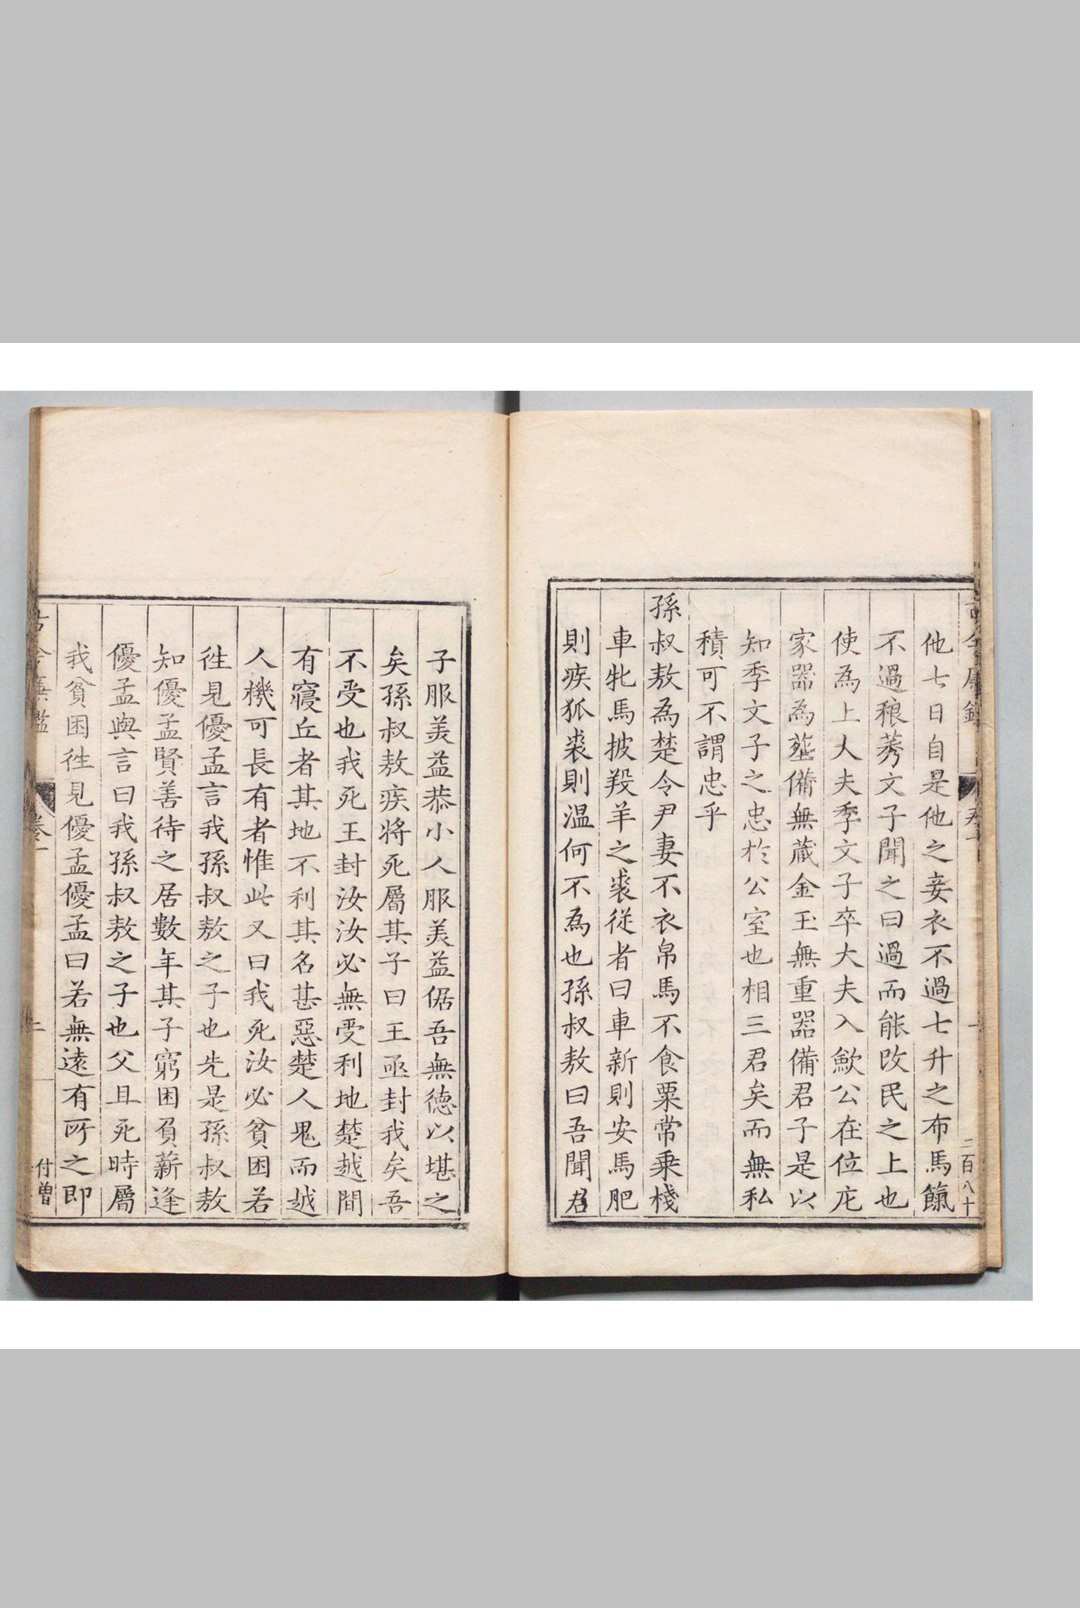 他七日自是他之妾衣不過七升之布馬餼
不過稂莠文子聞之曰過而能改民之上也
使為上人夫季文子卒大夫入歛公在位庀
家器為塟備無蔵金玉無重器備君子是以
知季文子之忠於公室也相三君矣而無私
積可不謂忠乎
孫叔敖為楚令尹妻不衣帛馬不食粟常乗棧
車牝馬披羖羊之裘従者曰車新則安馬肥
則疾狐裘則温何不為也孫叔敖曰吾聞君
二百八十
子服美益恭小人服美益倨吾無德以堪之
矣孫叔敖疾將死屬其子曰王亟封我矣吾
不受也我死王封汝汝必無受利地楚越間
有寢丘者其地不利其名甚惡楚人鬼而越
人機可長有者惟此又曰我死汝必貧困若
徃見優孟言我孫叔敖之子也先是孫叔敖
知優孟賢善待之居數年其子窮困負薪逢
優孟與言曰我孫叔敖之子也父且死時屬
我貧困徃見優孟優孟曰若無遠有所之即
卷一
付曽